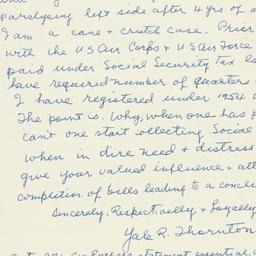 paralyzing left side after 4 yrs of
I am a cane + crutch case. Prior
with the US Air Corps + US Air Force
paid under Social Security Tax
have required number of quarters
I have registered under 1954
The point is. Why, when one has
can't one start collecting Social
when in dire need + distress
give your valued influence +
completion of bills leading to a
Sincerely, Respectfully + Loyally
Yale R. Thornton
statement essential,